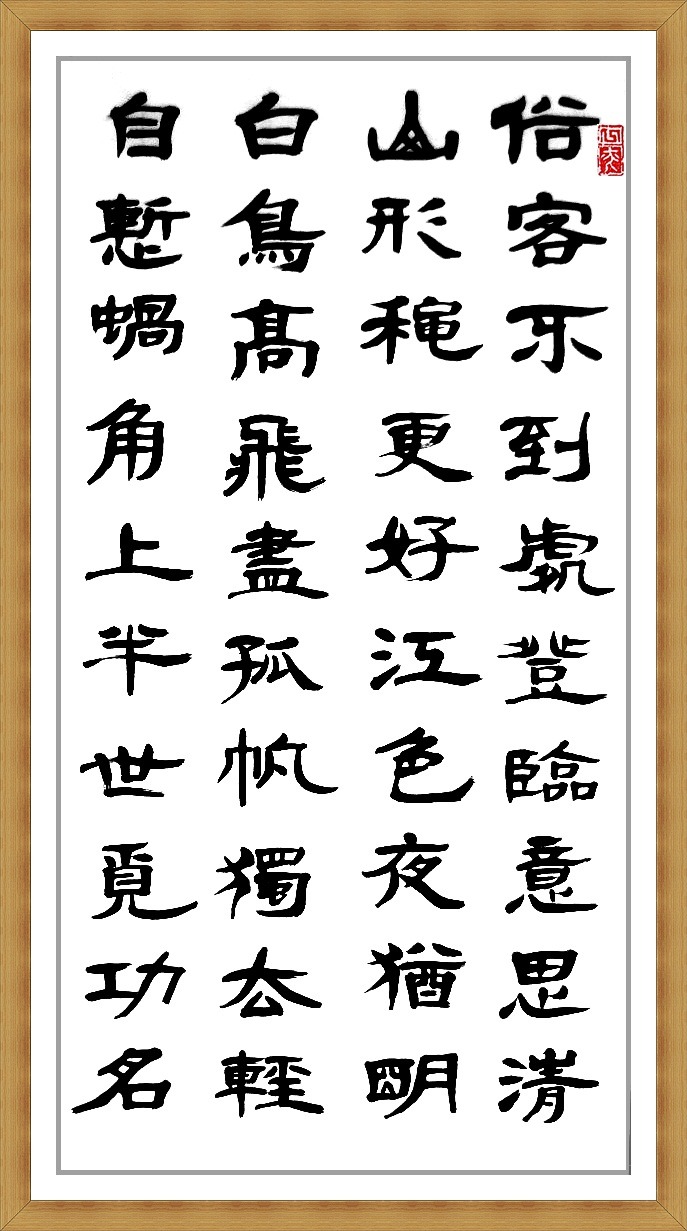 俗客不到處登臨意思清
山形穐更好江色夜猶明
白鳥髙飛盡孤帆獨去輕
自慙蝸角上半世覓功名